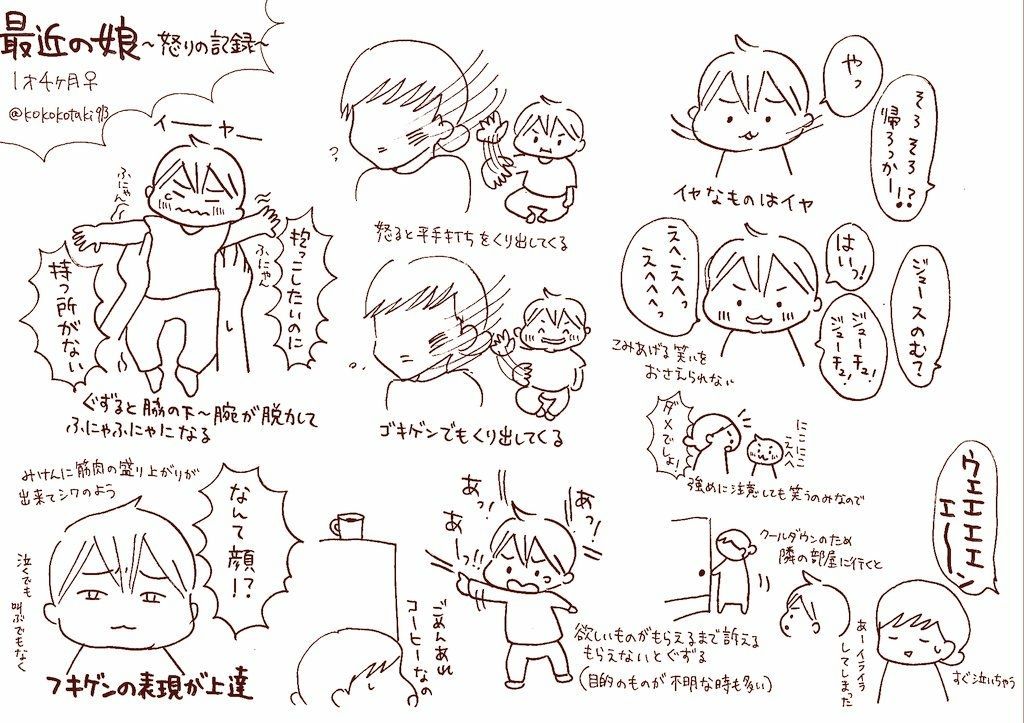 最近の娘〜怒りの記録〜
1才4ヶ月♀
@kokokotaki93
イーヤー
ふにゃん
ふにゃん
抱っこしたいのに
持つ所がない
ぐずると脇の下〜腕が脱力して
ふにゃふにゃになる
?
怒ると平手打ちをくり出してくる
ゴキゲンでもくり出してくる
やっ
そろそろ
帰ろっかー!?
イヤなものはイヤ
ジュースのむ?
はいっ!
ジューチュ!
ジューチュ!
えへ、えへっ
えへへへっ
こみあげる笑いを
おさえられない
みけんに筋肉の盛り上がりが
出来てシワのよう
なんて顔!?
泣くでも
叫ぶでもなく
フキゲンの表現が上達
あっ!
あーっ!!
あっ!
ごめんあれ
コーヒーなの
欲しいものがもらえるまで訴える
もらえないとぐずる
(目的のものが不明な時も多い)
ダメでしょ!
にこにこ
えへへ
強めに注意しても笑うのみなので
クールダウンのため
隣の部屋に行くと
ウエエエエ
エ〜ン
あーイライラ
してしまった
すぐ泣いちゃう